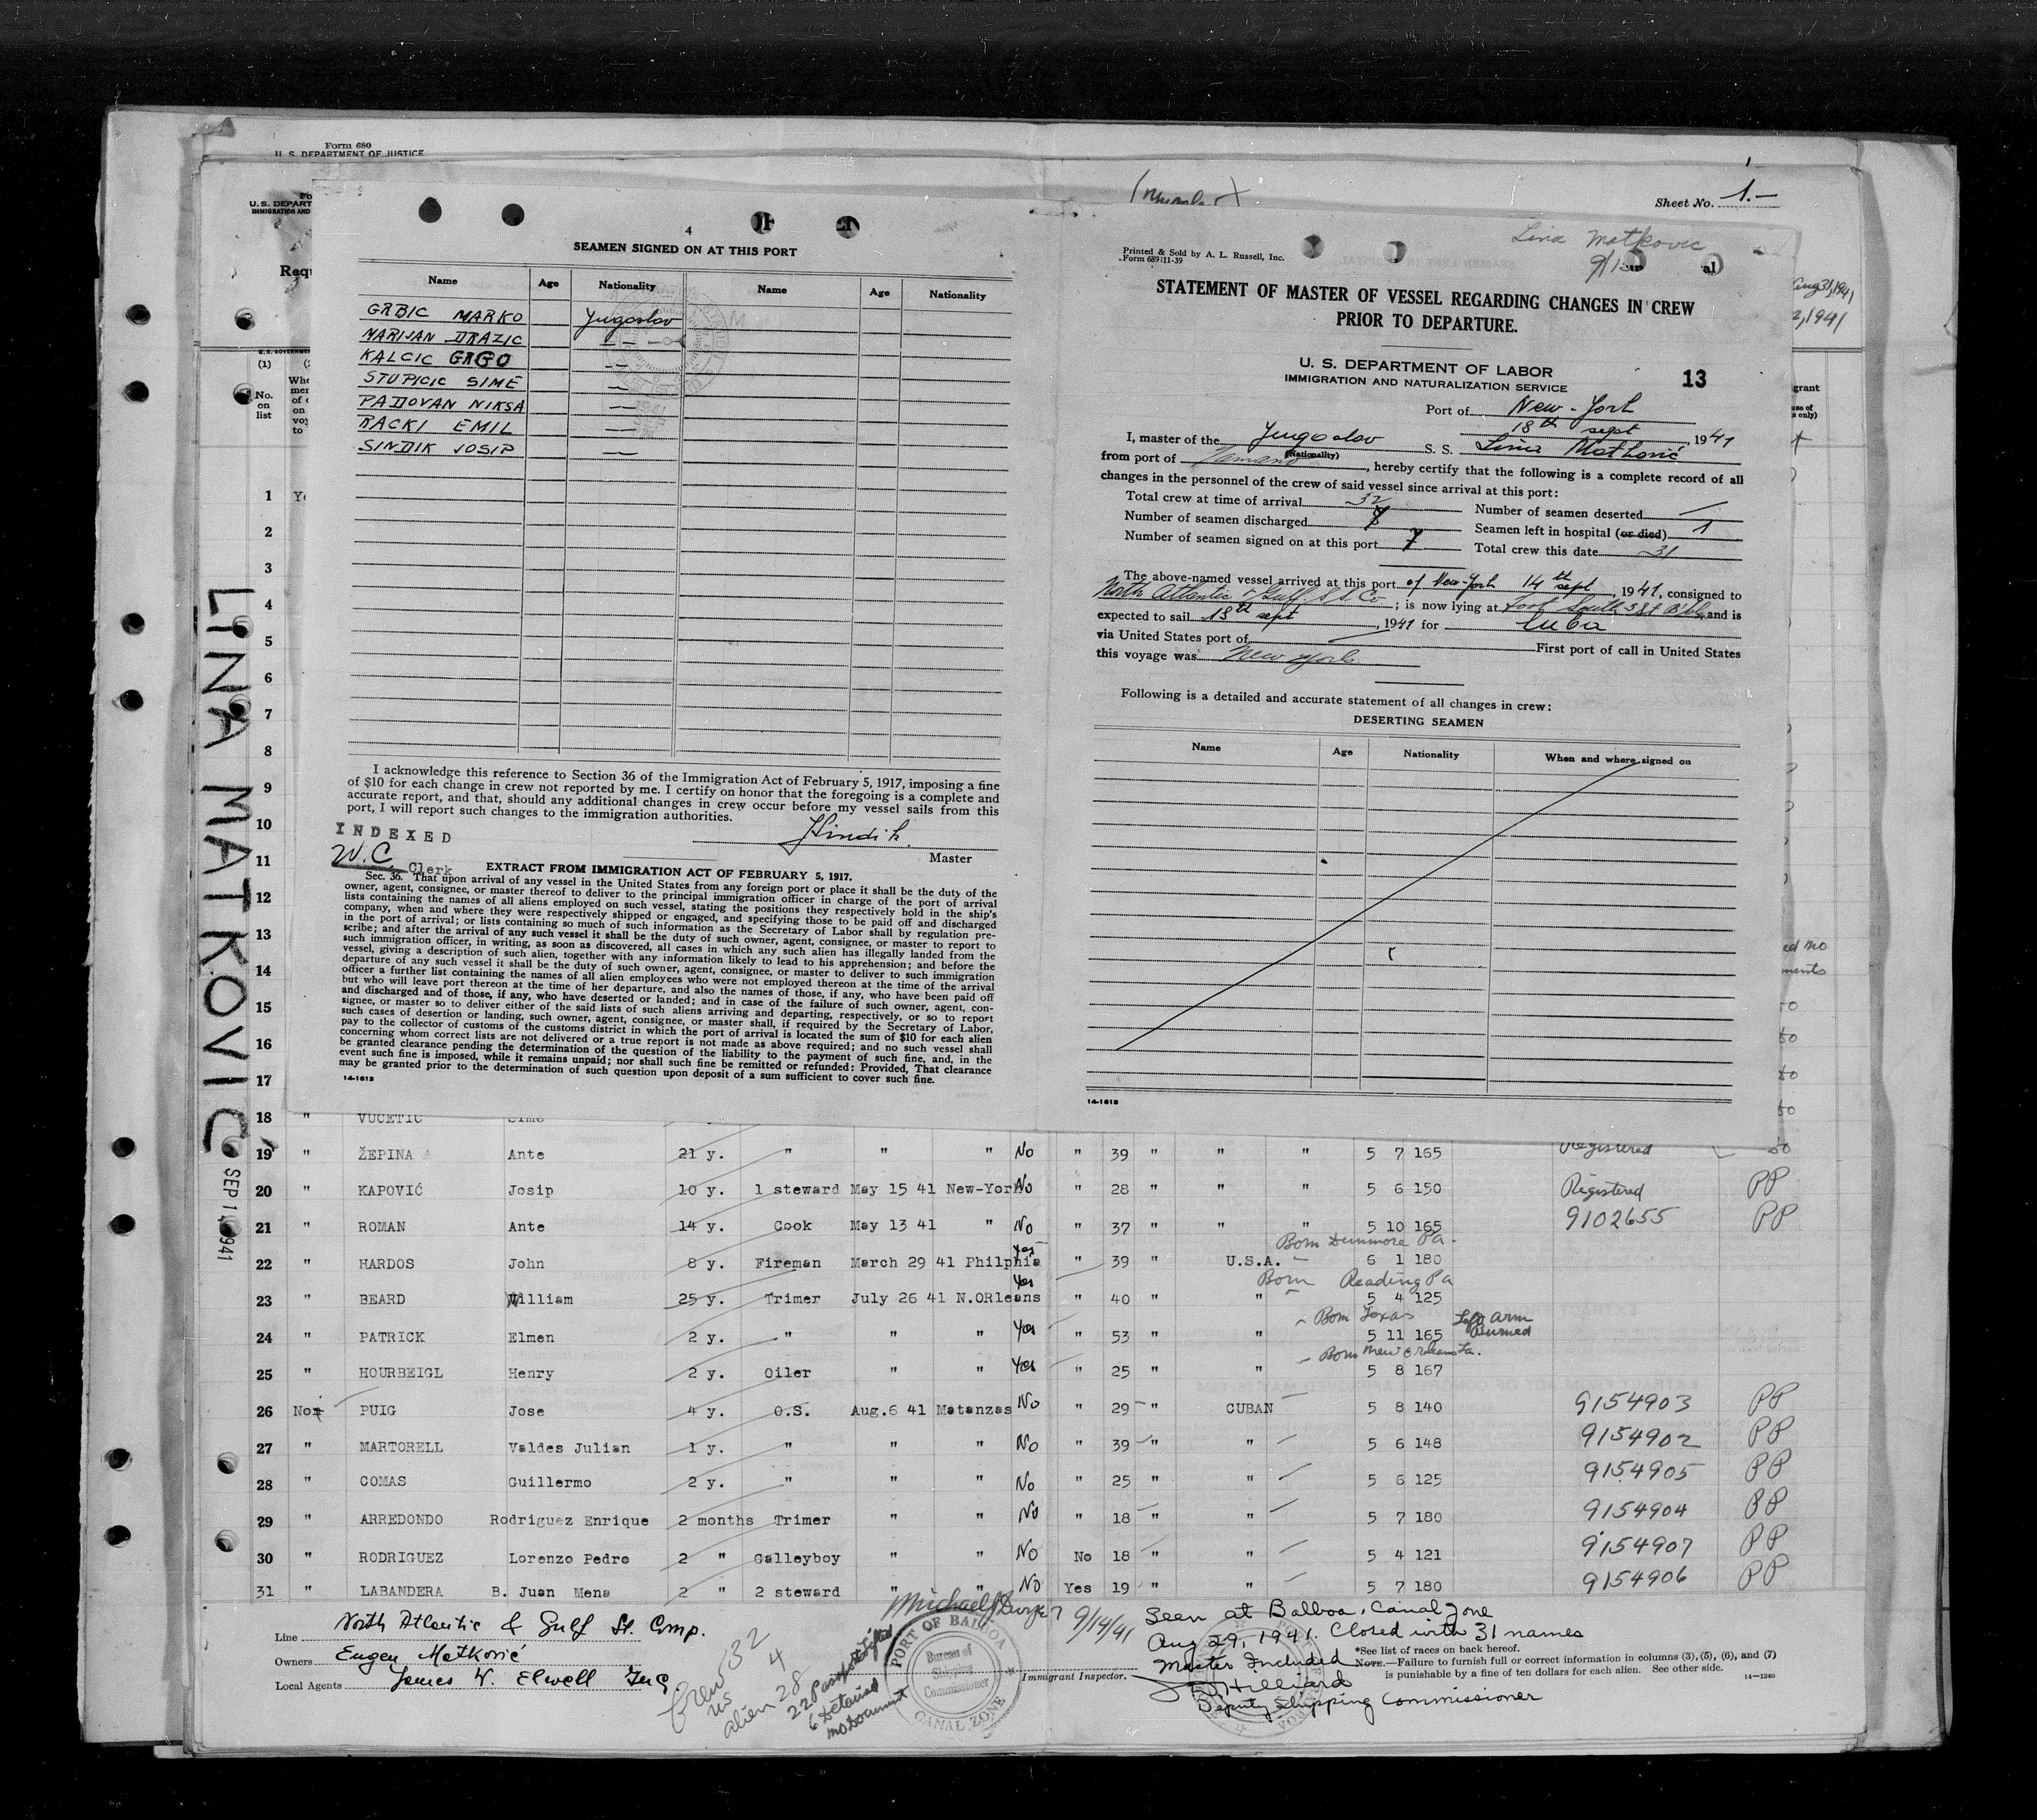 Form 680
U. S. DEPARTMENT OF JUSTICE
Sheet No. 1.-
U. S. DEPART
IMMIGRATION AND
4
SEAMEN SIGNED ON AT THIS PORT
Name Age Nationality Name Age Nationality
GRBIC MARKO Yugoslav
MARIJAN DRAZIC — —
KALCIC GRGO — —
STUPICIC SIME —
PADOVAN NIKSA —
RACKI EMIL —
SINDIK JOSIP —
I acknowledge this reference to Section 36 of the Immigration Act of February 5, 1917, imposing a fine
of $10 for each change in crew not reported by me. I certify on honor that the foregoing is a complete and
accurate report, and that, should any additional changes in crew occur before my vessel sails from this
port, I will report such changes to the immigration authorities.
INDEXED
W.C. Clerk
JSindik.
Master
EXTRACT FROM IMMIGRATION ACT OF FEBRUARY 5, 1917.
Sec. 36. That upon arrival of any vessel in the United States from any foreign port or place it shall be the duty of the
owner, agent, consignee, or master thereof to deliver to the principal immigration officer in charge of the port of arrival
lists containing the names of all aliens employed on such vessel, stating the positions they respectively hold in the ship's
company, when and where they were respectively shipped or engaged, and specifying those to be paid off and discharged
in the port of arrival; or lists containing so much of such information as the Secretary of Labor shall by regulation pre-
scribe; and after the arrival of any such vessel it shall be the duty of such owner, agent, consignee, or master to report to
such immigration officer, in writing, as soon as discovered, all cases in which any such alien has illegally landed from the
vessel, giving a description of such alien, together with any information likely to lead to his apprehension; and before the
departure of any such vessel it shall be the duty of such owner, agent, consignee, or master to deliver to such immigration
officer a further list containing the names of all alien employees who were not employed thereon at the time of the arrival
but who will leave port thereon at the time of her departure, and also the names of those, if any, who have been paid off
and discharged and of those, if any, who have deserted or landed; and in case of the failure of such owner, agent, con-
signee, or master so to deliver either of the said lists of such aliens arriving and departing, respectively, or so to report
such cases of desertion or landing, such owner, agent, consignee, or master shall, if required by the Secretary of Labor,
pay to the collector of customs of the customs district in which the port of arrival is located the sum of $10 for each alien
concerning whom correct lists are not delivered or a true report is not made as above required; and no such vessel shall
be granted clearance pending the determination of the question of the liability to the payment of such fine, and, in the
event such fine is imposed, while it remains unpaid; nor shall such fine be remitted or refunded: Provided, That clearance
may be granted prior to the determination of such question upon deposit of a sum sufficient to cover such fine.
14-1613
Lina Matkovic
Printed & Sold by A. L. Russell, Inc.
Form 689:11-39
STATEMENT OF MASTER OF VESSEL REGARDING CHANGES IN CREW
PRIOR TO DEPARTURE.
U. S. DEPARTMENT OF LABOR
IMMIGRATION AND NATURALIZATION SERVICE
13
Port of New-York
18th sept, 1941
I, master of the Yugoslav S. S. Lina Matković
(Nationality)
from port of , hereby certify that the following is a complete record of all
changes in the personnel of the crew of said vessel since arrival at this port:
Total crew at time of arrival 32 Number of seamen deserted —
Number of seamen discharged 7 Seamen left in hospital (or died) 1
Number of seamen signed on at this port 7 Total crew this date 31
The above-named vessel arrived at this port of New-York 14th sept, 1941, consigned to
North Atlantic & Gulf S.S. Co; is now lying at Foot South 38t Bkln, and is
expected to sail 18th sept, 1941 for Cuba
via United States port of — First port of call in United States
this voyage was New York
Following is a detailed and accurate statement of all changes in crew:
DESERTING SEAMEN
Name Age Nationality When and where signed on
14-1613
Aug 31, 1941
2, 1941
LINA MATKOVIC
(1)
No. on list
1
2
3
4
5
6
7
8
9
10
11
12
13
14
15
16
17
18 " VUCETIC Sime
19 " ŽEPINA Ante 21 y. " " " No " 39 " " " 5 7 165 Registered
20 " KAPOVIĆ Josip 10 y. 1 steward May 15 41 New-York No " 28 " " " 5 6 150 Registered PP
21 " ROMAN Ante 14 y. Cook May 13 41 " No " 37 " " " 5 10 165 9102655 PP
Born Dunmore Pa.
22 " HARDOS John 8 y. Fireman March 29 41 Philphia Yes " 39 " U.S.A. 6 1 180
Born Reading Pa
23 " BEARD William 25 y. Trimer July 26 41 N.ORleans Yes " 40 " " 5 4 125
Born Texas Left arm Burned
24 " PATRICK Elmen 2 y. " " " Yes " 53 " " 5 11 165
Born New Orleans La.
25 " HOURBEIGL Henry 2 y. Oiler " " Yes " 25 " " 5 8 167
26 Non PUIG Jose 4 y. O.S. Aug.6 41 Matanzas No " 29 " CUBAN 5 8 140 9154903 PP
27 " MARTORELL Valdes Julian 1 y. " " " No " 39 " " 5 6 148 9154902 PP
28 " COMAS Guillermo 2 y. " " " No " 25 " " 5 6 125 9154905 PP
29 " ARREDONDO Rodriguez Enrique 2 months Trimer " " No " 18 " " 5 7 180 9154904 PP
30 " RODRIGUEZ Lorenzo Pedro 2 " Galleyboy " " No No 18 " " 5 4 121 9154907 PP
31 " LABANDERA B. Juan Mena 2 " 2 steward " " No Yes 19 " " 5 7 180 9154906 PP
Line North Atlantic & Gulf St. Comp.
Owners Eugen Matković
Local Agents James W. Elwell Inc
Crew 32
US 4
Alien 28
22 Passports
6 Detained
no Document
PORT OF BALBOA
Bureau of
Shipping
Commissioner
CANAL ZONE
9/14/41
Immigrant Inspector.
Seen at Balboa, Canal Zone
Aug 29, 1941. Closed with 31 names
Master Included
Hilliard
Deputy Shipping Commissioner
*See list of races on back hereof.
NOTE.—Failure to furnish full or correct information in columns (3), (5), (6), and (7)
is punishable by a fine of ten dollars for each alien. See other side.
14—1240